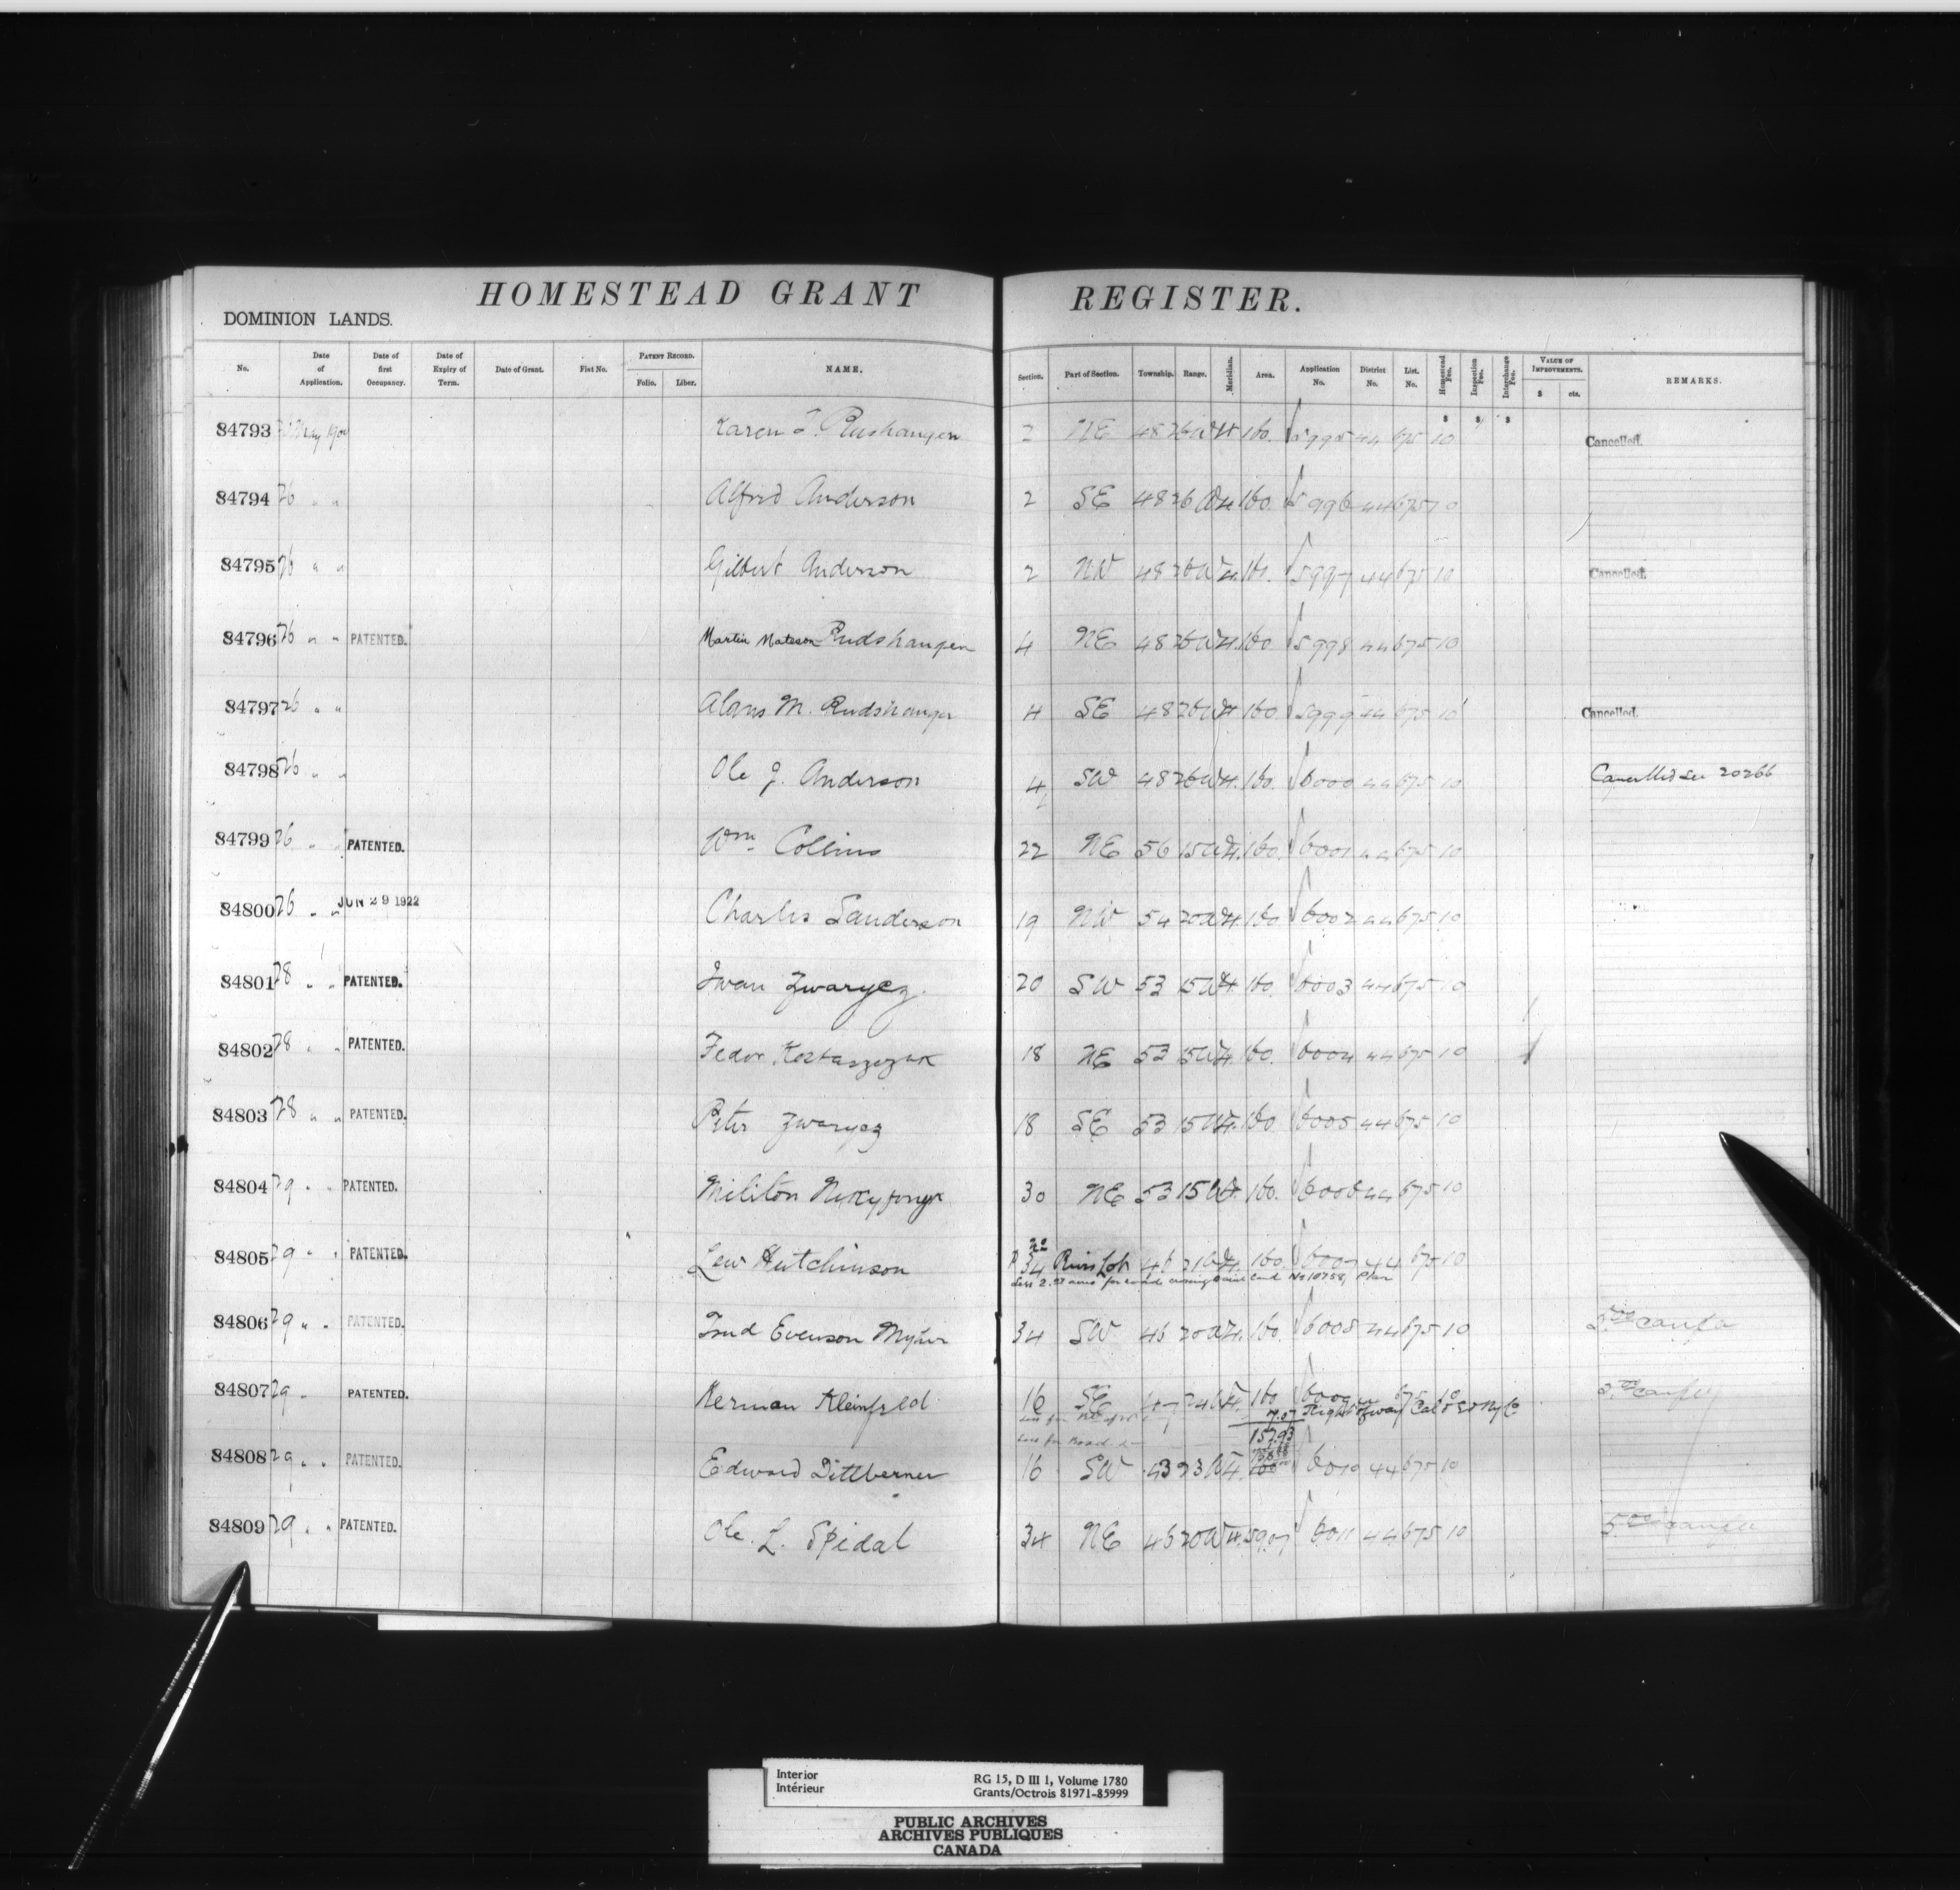 HOMESTEAD GRANT REGISTER.
DOMINION LANDS.
No. Date of Application. Date of first Occupancy. Date of Expiry of Term. Date of Grant. Fiat No. PATENT RECORD. Folio. Liber. NAME. Section. Part of Section. Township. Range. Meridian. Area. Application No. District No. List. No. Homestead Fee. Inspection Fee. Interchange Fee. VALUE OF IMPROVEMENTS. $ cts. REMARKS.
84793 May Karen 2 NE 48 26 W4 160. 5995 44 675 10 Cancelled.
84794 26 " " Alfrid Anderson 2 SE 48 26 W4 160. 5996 44 675 10
84795 26 " " Gilbert Anderson 2 NW 48 26 W4. 160. 5997 44 675 10 Cancelled.
84796 26 " " PATENTED. Martin Mateson Rudshaugen 4 NE 48 26 W4. 160 5998 44 675 10
84797 26 " " M. 4 SE 48 26 W4 160. 5999 44 675 10 Cancelled.
84798 26 " " Ole J. Anderson 4 SW 48 26 W4. 160. 6000 44 675 10 Cancelled See 20266
84799 26 " " PATENTED. Wm. Collins 22 NE 56 15 W4. 160. 6001 44 675 10
84800 26 " " JUN 29 1922 Charles Sanderson 19 NW 54 20 W4. 160 6002 44 675 10
84801 28 " " PATENTED. Iwan Zwarycz. 20 SW 53 15 W4. 160. 6003 44 675 10
84802 28 " " PATENTED. Fedor Kostaszczuk 18 NE 53 15 W4. 160. 6004 44 675 10
84803 28 " " PATENTED. Peter Zwarycz 18 SE 53 15 W4. 160 6005 44 675 10
84804 29 " " PATENTED. Militon 30 NE 53 15 W4. 160. 6006 44 675 10
84805 29 " " PATENTED. Lew Hutchinson 22 34 River Lot 46 21 W4. 160. 6007 44 675 10
Less acres for road crossing said land No 10758, Plan
84806 29 " " PATENTED. Evenson 34 SW 46 20 W4. 160. 6008 44 675 10
84807 29 " PATENTED. Herman Kleinfeld 16 SE 47 24 W4. 160 6009 44 675 10
7.07 Right of way Cal & Ed Ry Co
Less for Road 152.93
84808 29 " " PATENTED. Edward Dittberner 16 SW 43 23 W4. 6010 44 675 10
84809 29 " " PATENTED. Ole L. Spidal 34 NE 46 20 W4. 6011 44 675 10
Interior
Intérieur
RG 15, D III 1, Volume 1780
Grants/Octrois 81971-85999
PUBLIC ARCHIVES
ARCHIVES PUBLIQUES
CANADA